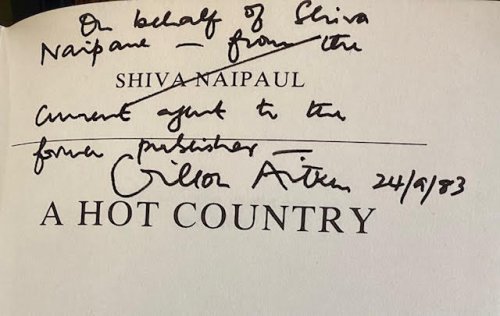 On behalf of Shiva
Naipaul — from the
SHIVA NAIPAUL
current agent to the
former publisher —
Gillon Aitken 24/9/83
A HOT COUNTRY